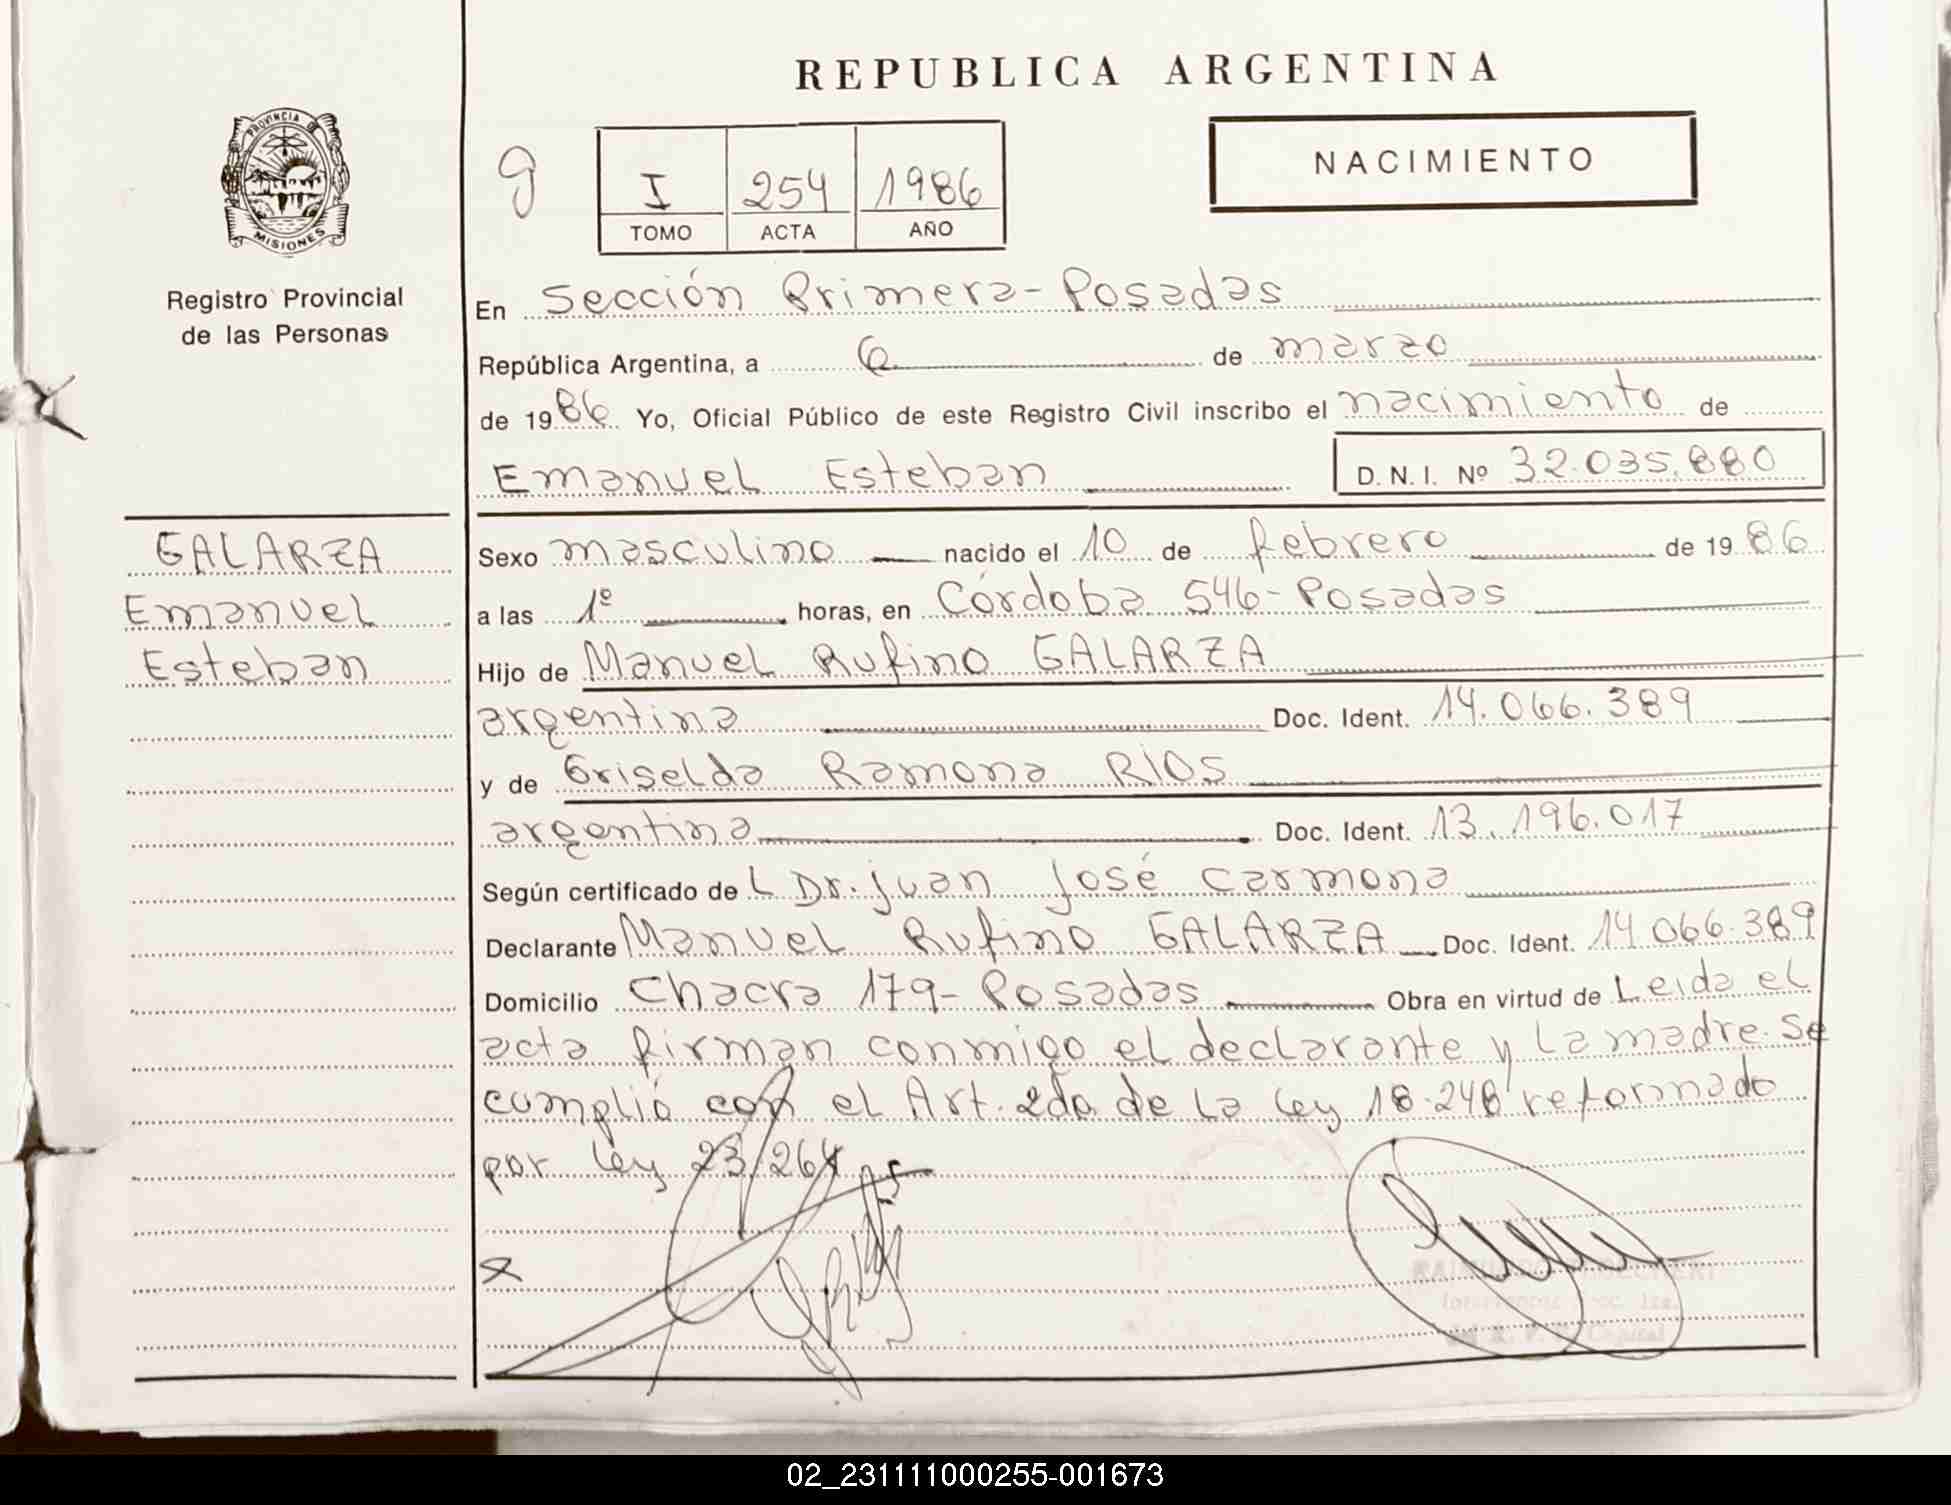 REPUBLICA ARGENTINA
PROVINCIA DE
MISIONES
Registro Provincial
de las Personas
g
I 254 1986
TOMO ACTA AÑO
NACIMIENTO
En Sección Primera-Posadas
República Argentina, a 6 de marzo
de 1986 Yo, Oficial Público de este Registro Civil inscribo el nacimiento de
Emanuel Esteban D.N.I. Nº 32.035.880
GALARZA
Emanuel
Esteban
Sexo masculino nacido el 10 de febrero de 1986
a las 1º horas, en Córdoba 546-Posadas
Hijo de Manuel Rufino GALARZA
argentina Doc. Ident. 14.066.389
y de Griselda Ramona RÍOS
argentina Doc. Ident. 13.196.017
Según certificado de L Dr. Juan José Carmona
Declarante Manuel Rufino GALARZA Doc. Ident. 14.066.389
Domicilio Chacra 179-Posadas Obra en virtud de Leida el
acta firman conmigo el declarante y la madre. Se
cumplió con el Art. 2da de la Ley 18.248 reformado
por Ley 23/264
02_231111000255-001673